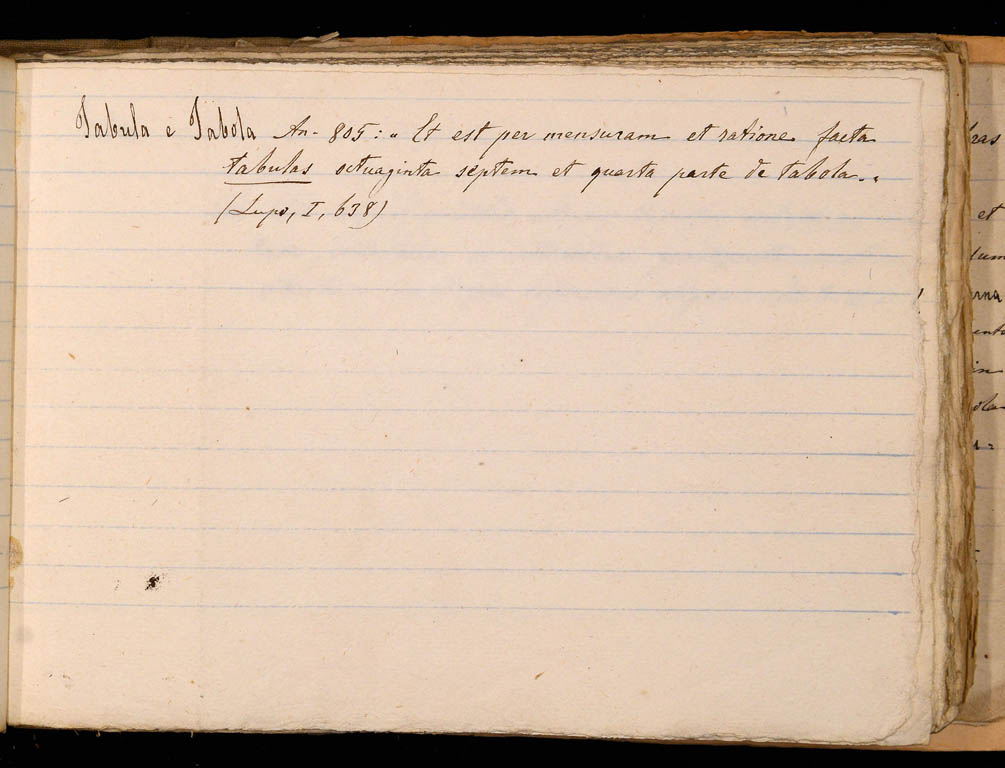 Tabula e Tabola An. 805: „ Et est per mensuram et ratione facta
tabulas octuaginta septem et quarta parte de tabola. „
(Lupo, I, 638)
et
in